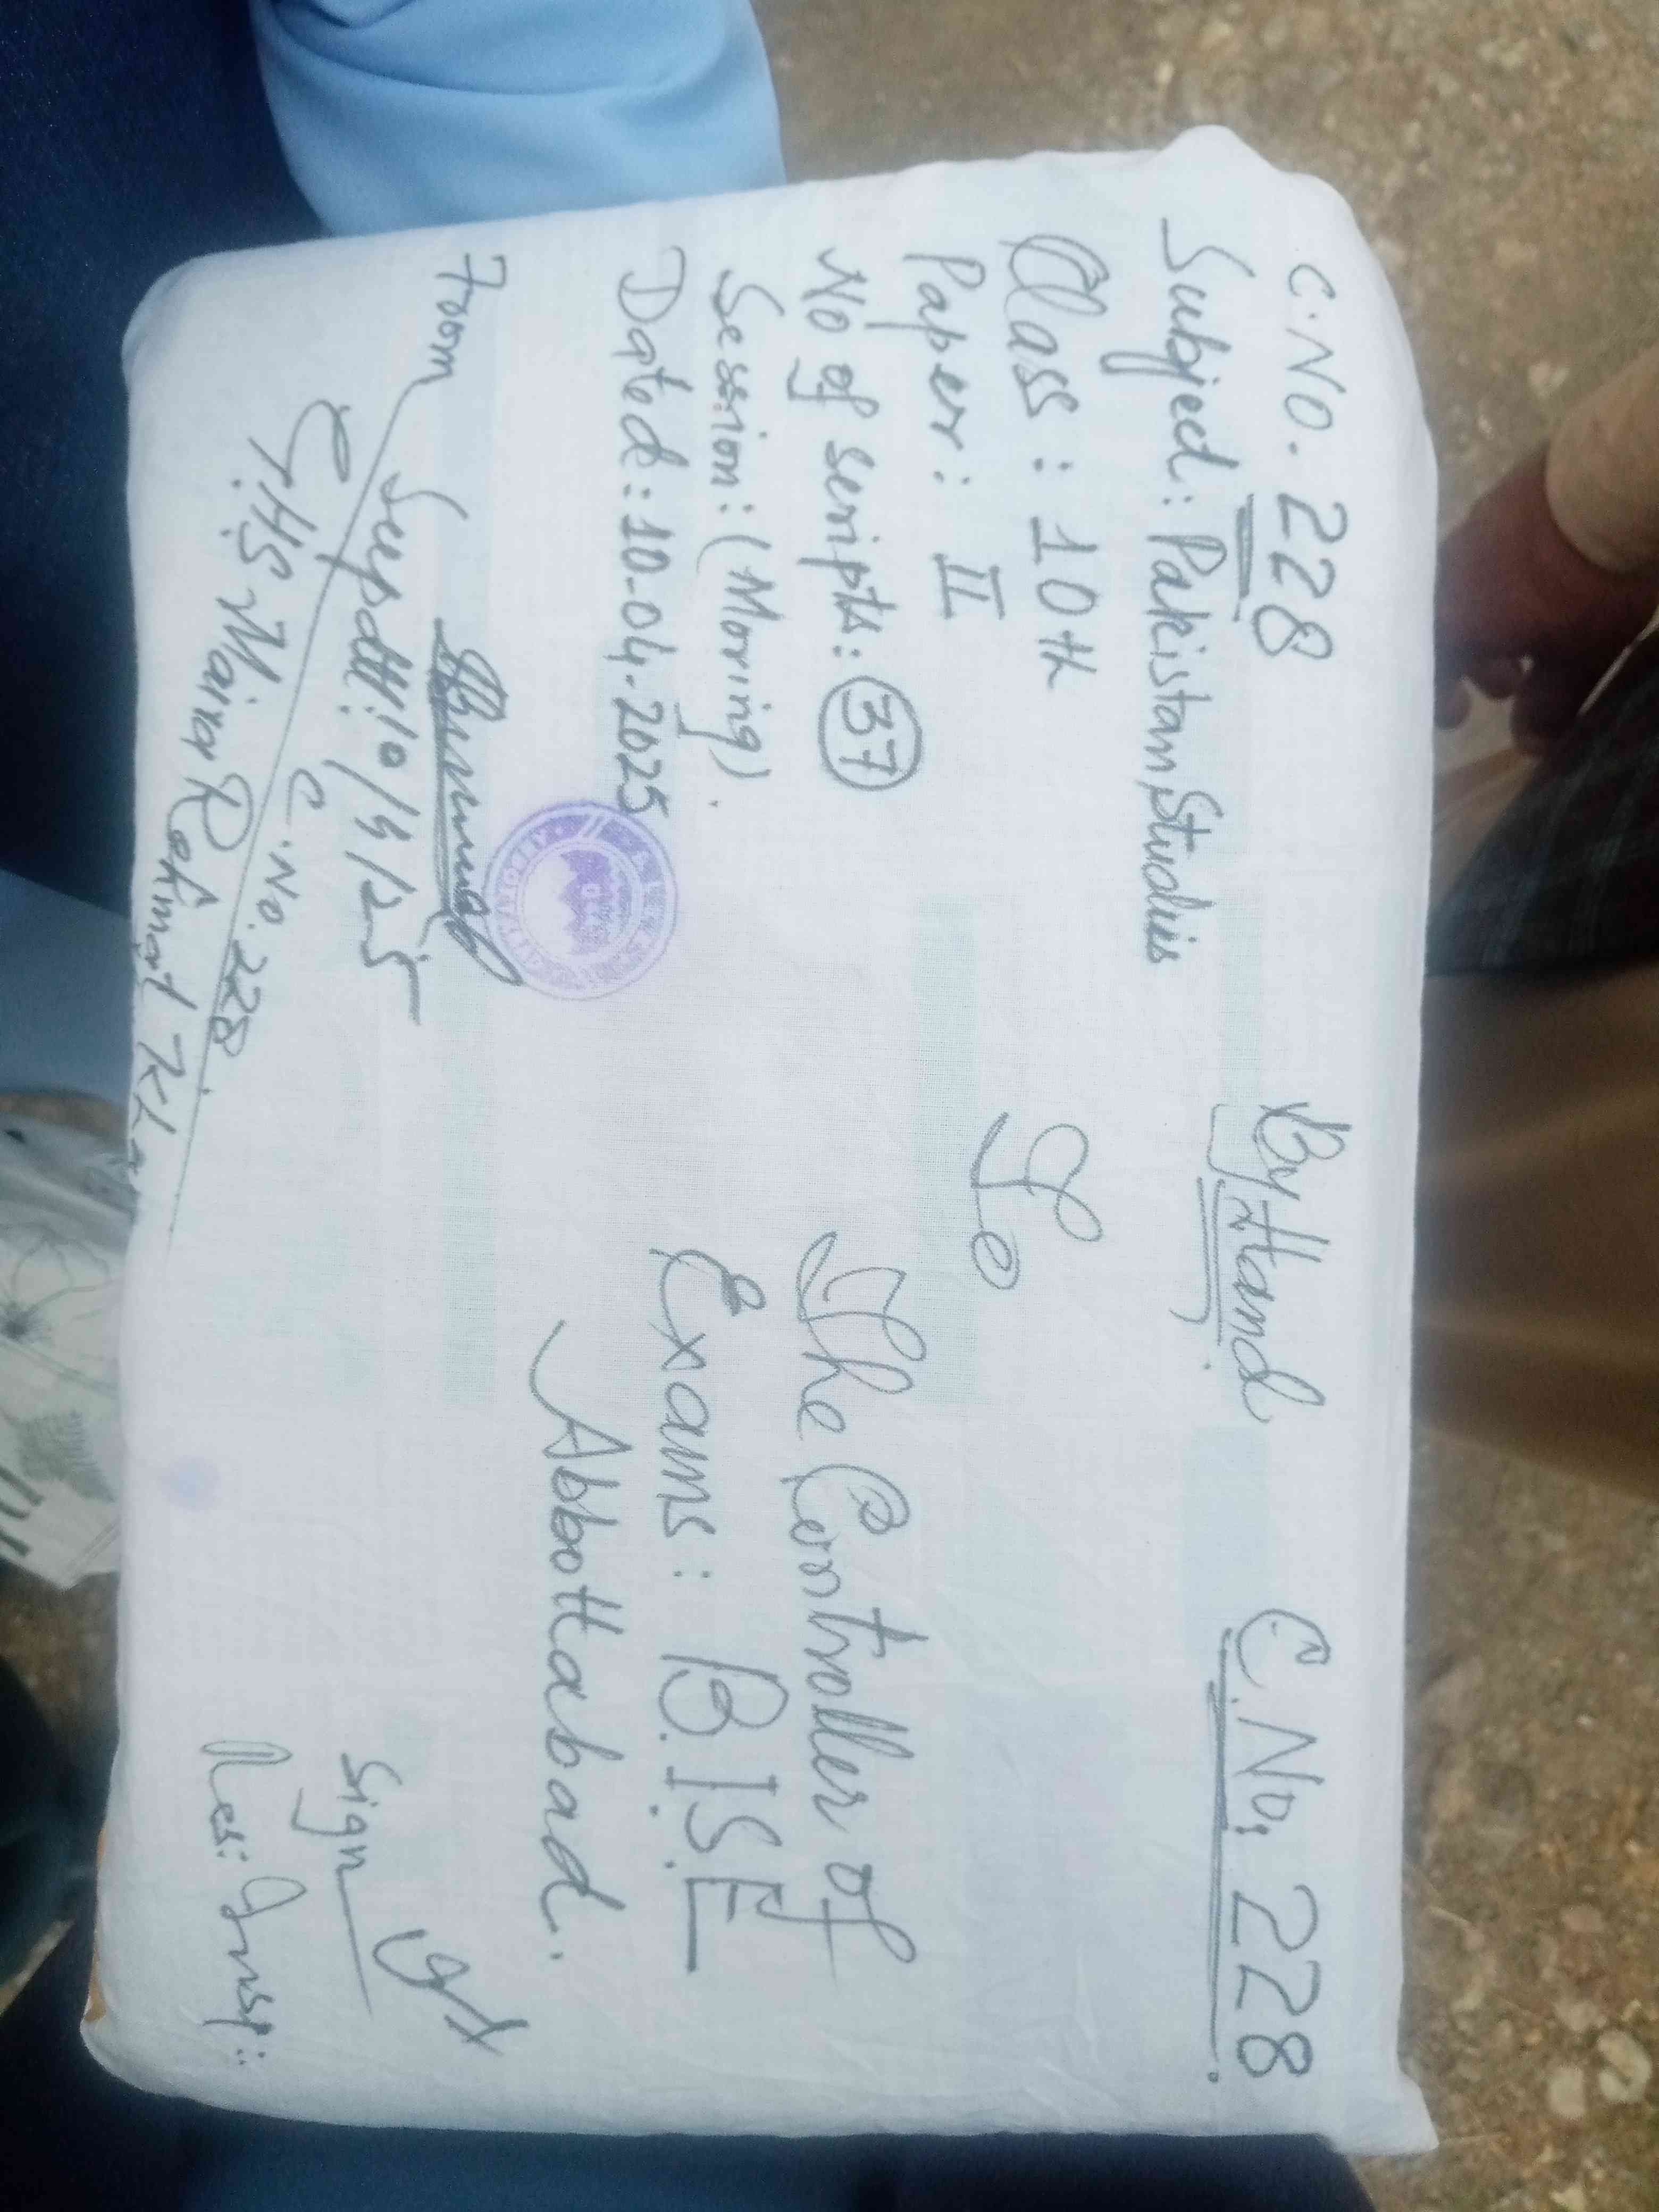 C.NO. 228
By Hand
C.No. 228.
Subject: Pakistan Studies
Class: 10th
Paper: II
No of scripts: 37
Session: (Morning).
Dated: 10-04-2025
To
The Controller of
Exams: B.I.S.E
Abbottabad.
From
Supdtt: 10/4/25
C.No. 228.
GHS Maira Rehmat Khan
Sign
Res: Insp: